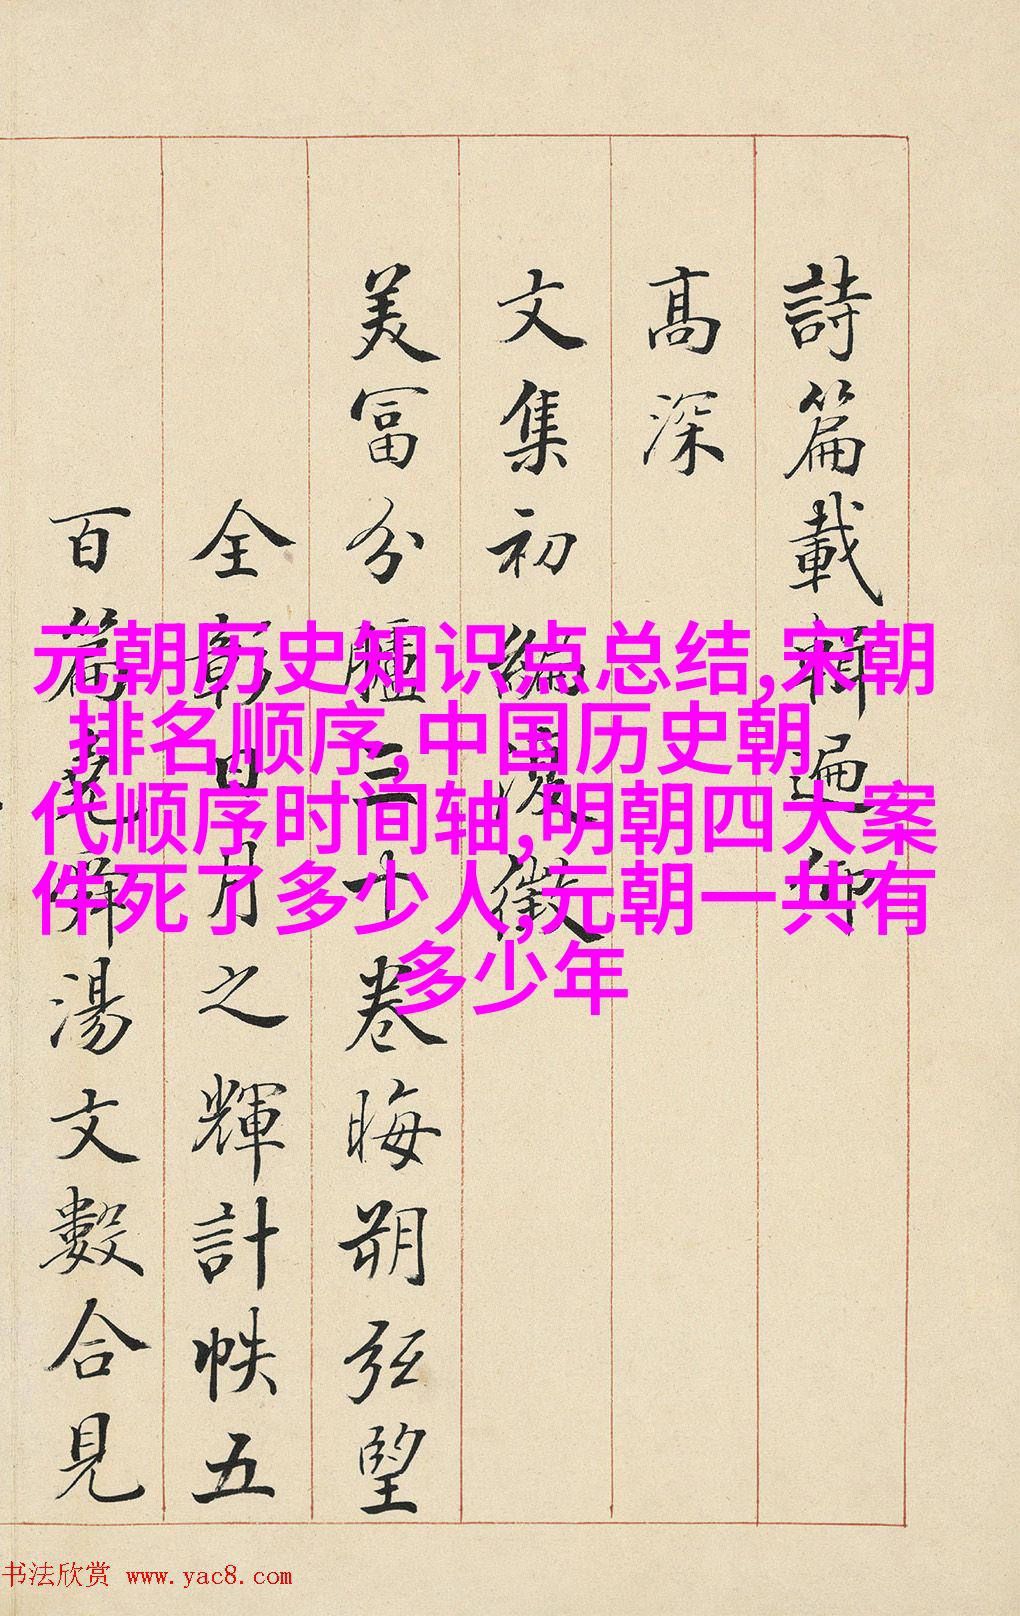 詩篇載賡遍仰
高深
文集初編復徵
美富分臚三十卷晦朔弦望
全彰日月之輝計帙五
百篇堯舜湯文數合見
元朝历史知识点总结,宋朝
排名顺序,中国历史朝
代顺序时间轴,明朝四大案
件死了多少人,元朝一共有
多少年
书法欣赏 www.yac8.com